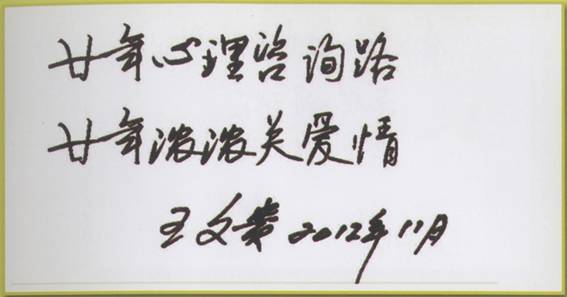 廿年心理咨询路
廿年浓浓关爱情
王文 2012年11月